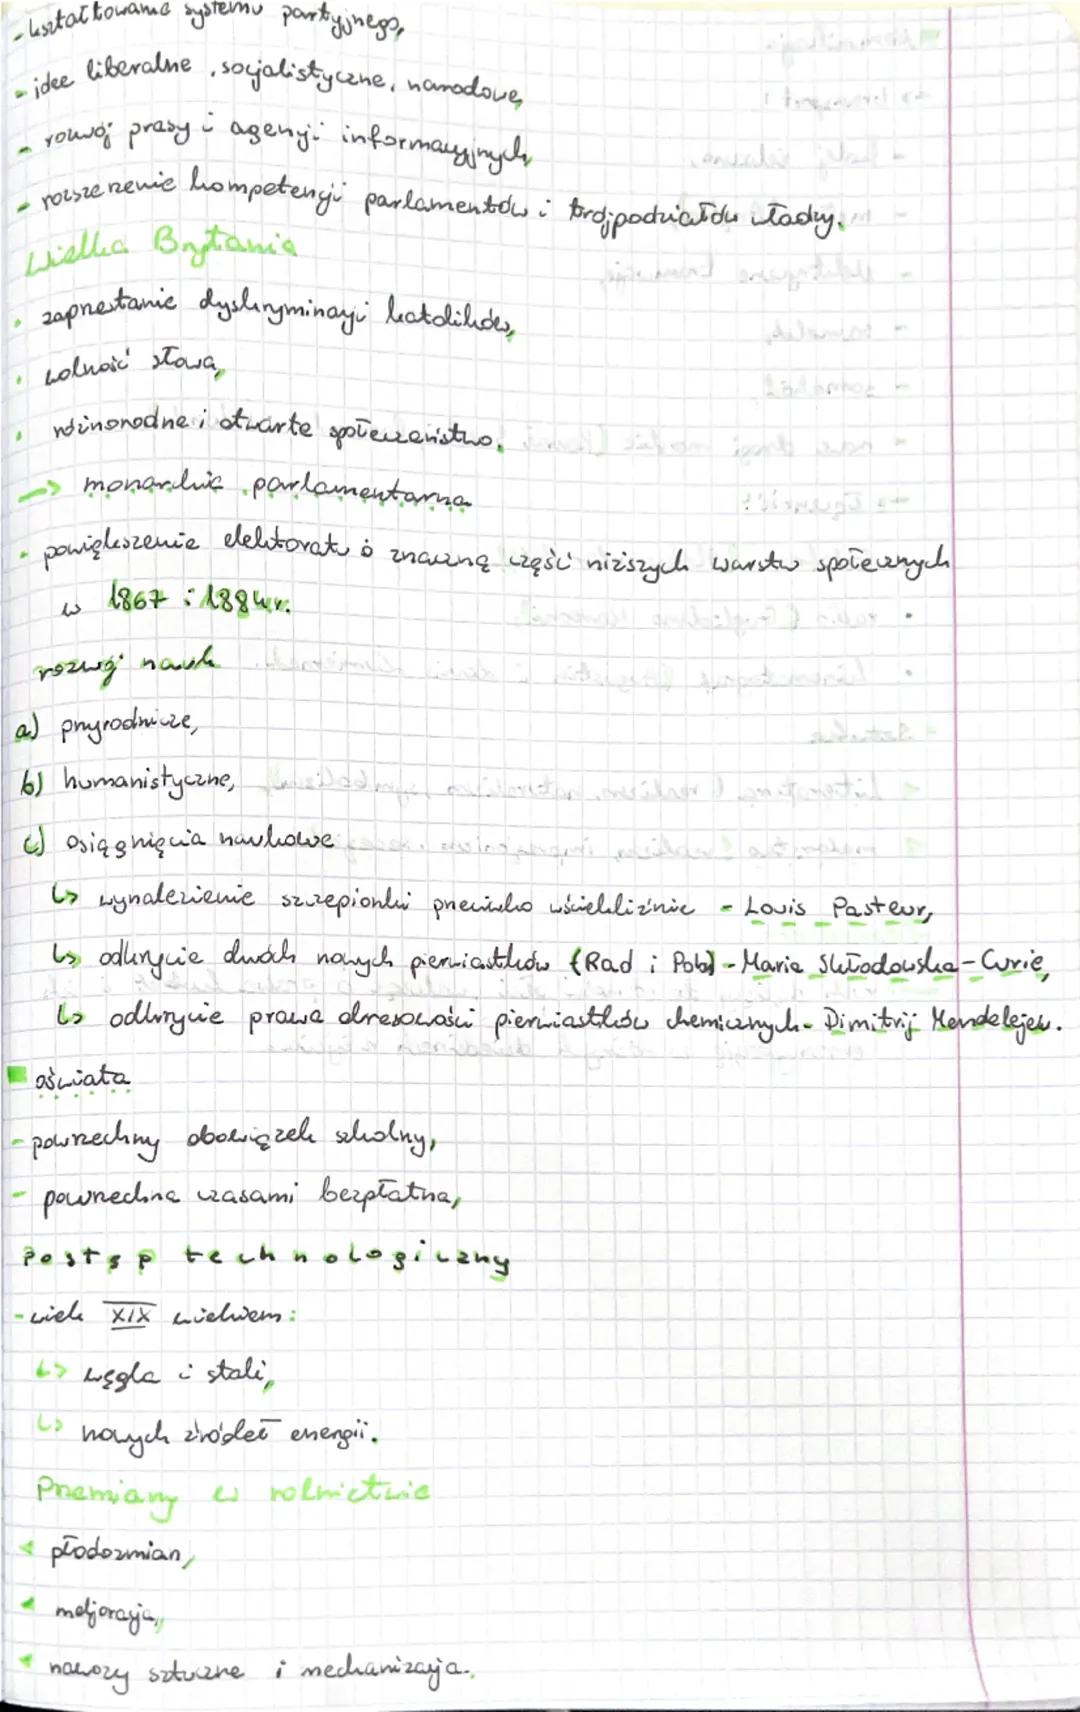 - kształtowanie systemu partyjnego,
- idee liberalne, socjalistyczne, narodowe,
- rozwój prasy i agencji informacyjnych,
- rozszerzenie kompetencji parlamentów i trójpodziałów władzy.
Wielka Brytania
• zaprzestanie dyskryminacji katolików,
• wolność słowa,
• różnorodne i otwarte społeczeństwo.
→ monarchia parlamentarna
• powiększenie elektoratu o znaczną część niższych warstw społecznych
w 1867 i 1884 r.
rozwój nauk
a) przyrodnicze,
b) humanistyczne,
c) osiągnięcia naukowe
↳ wynalezienie szczepionki przeciwko wściekliźnie - Louis Pasteur,
↳ odkrycie dwóch nowych pierwiastków (Rad i Polo) - Maria Skłodowska-Curie,
↳ odkrycie prawa okresowości pierwiastków chemicznych - Dimitrij Mendelejew.
oświata
- powszechny obowiązek szkolny,
- powszechna czasami bezpłatna,
Postęp technologiczny
- wiek XIX wiekiem:
↳ węgla i stali,
↳ nowych źródeł energii.
Przemiany w rolnictwie
◄ płodozmian,
◄ meljoracja,
◄ nawozy sztuczne i mechanizacja.